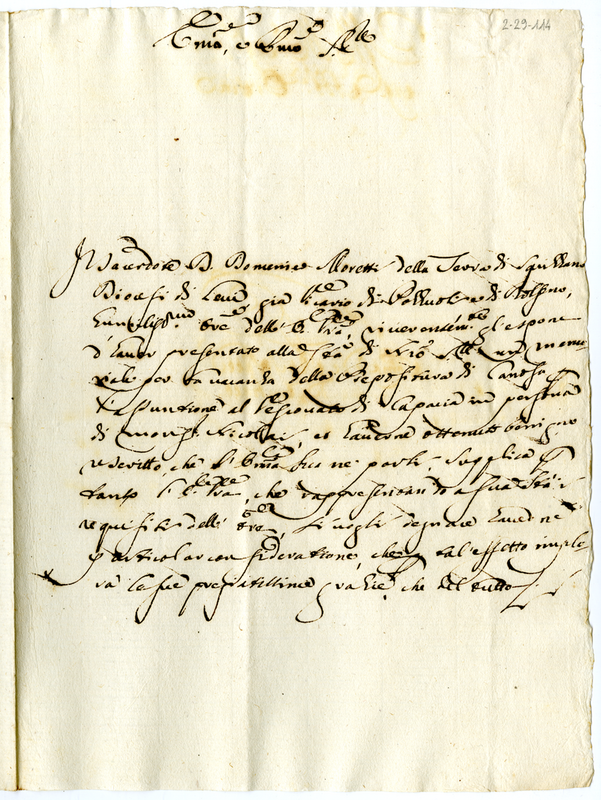 2-29-114
Em̃o, e Rmo Sig.re
Il Sacerdote D. Domenico Moretti della Terra di Squinzano
Diocesi di Lecce già Vicario di Pozzuoli e di
humiliss.mo Ore dell' E. Vra, riverentem.te gl'espone
d'haver presentato alla Stà di Nro Sig.re un memo-
riale per la vacanza della Prepositura di Canosa p
l'assuntione al Vescovato di Capaccia in persona
di Mons.r Nicolai, et havendone ottenuto benigno
rescritto, che l' Em̃a Sua ne parli, supplica p
tanto l' E. Vra, che rapresentando a Sua Stà i
requisiti dell' Ore, si vogli degnare haverne
particolar consideratione, che a tal effetto imple-
rà le sue pregiatissime gratie, che del tutto